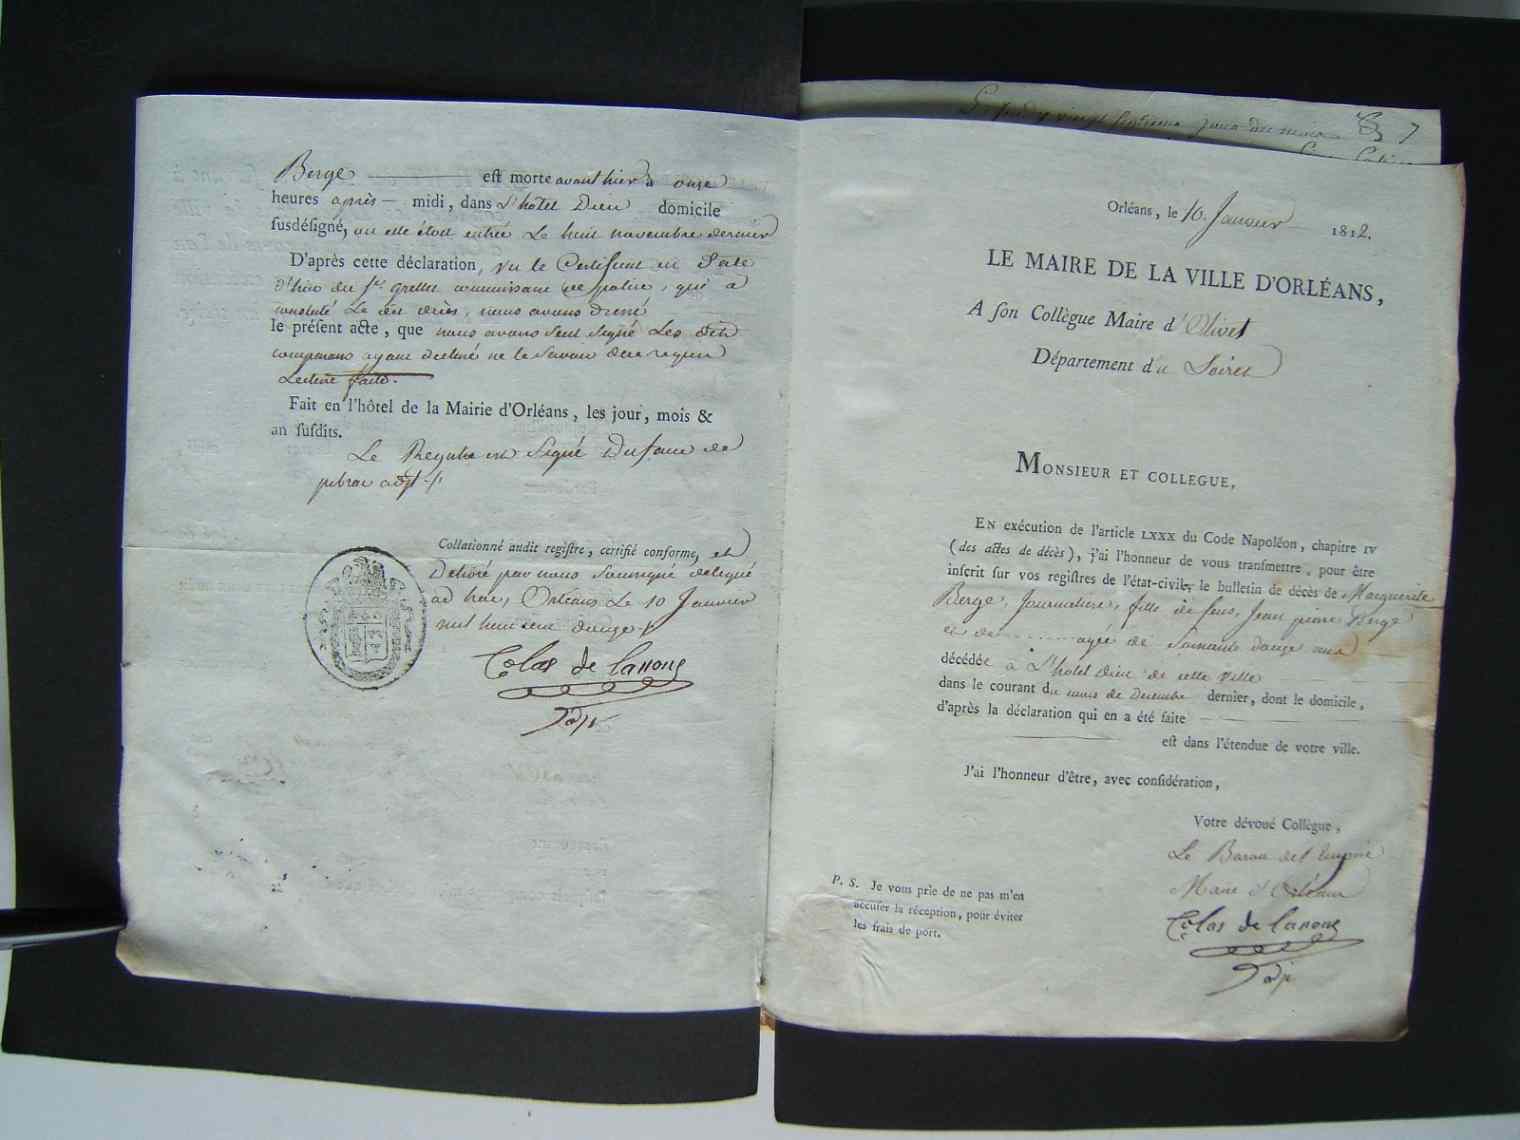 Berge est morte avant hier à onze
heures après midi, dans l'hôtel Dieu domicile
susdésigné, où elle étoit entrée Le huit novembre dernier
D'après cette déclaration, vu le Certificat en Date
d'hier du Sr. Grellet commissaire de police, qui a
constaté Le dit décès, nous avons dressé
le présent acte, que nous avons seul signé Les dits
comparans ayant déclaré ne le savoir de ce requis
Lecture faite.
Fait en l'hôtel de la Mairie d'Orléans, les jour, mois &
an susdits.
Le Registre est Signé Dufaur de
pibrac adjt.
Collationné audit registre, certifié conforme, et
Délivré par nous Soussigné délégué
ad hoc, Orléans Le 10 Janvier
mil huit cent douze
Colas de Lanoue
adjt
Le jeudy vingt septieme jour du mois 7
Orléans, le 10 Janvier 1812.
LE MAIRE DE LA VILLE D'ORLÉANS,
A son Collègue Maire d'Olivet
Département du Loiret
MONSIEUR ET COLLEGUE,
EN exécution de l'article LXXX du Code Napoléon, chapitre IV
(des actes de décès), j'ai l'honneur de vous transmettre, pour être
inscrit sur vos registres de l'état-civil, le bulletin de décès de Marguerite
Berge, Journalière, fille de feus, Jean pierre Berge
et de ........ agée de Soixante douze ans
décédée à L'hotel Dieu de cette ville
dans le courant du mois de Décembre dernier, dont le domicile,
d'après la déclaration qui en a été faite
est dans l'étendue de votre ville.
J'ai l'honneur d'être, avec considération,
Votre dévoué Collègue,
Le Baron de l'Empire
Maire d'Orléans
Colas de Lanoue
adj
P. S. Je vous prie de ne pas m'en
accuser la réception, pour éviter
les frais de port.